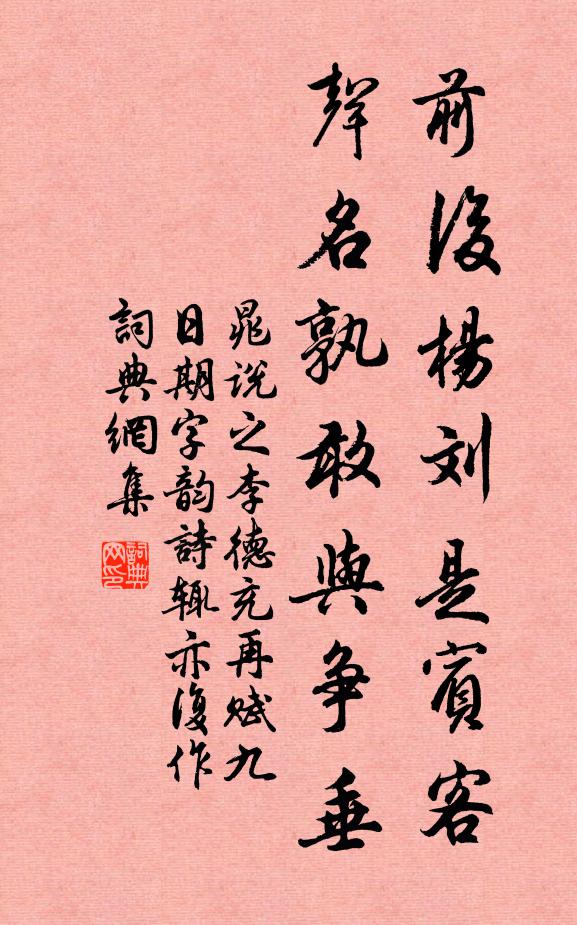 前後楊刘是賓客
聲名孰敢與争垂
晁说之李德充再赋九
日期字韵詩辄亦復作
詞典網集
詞典網印